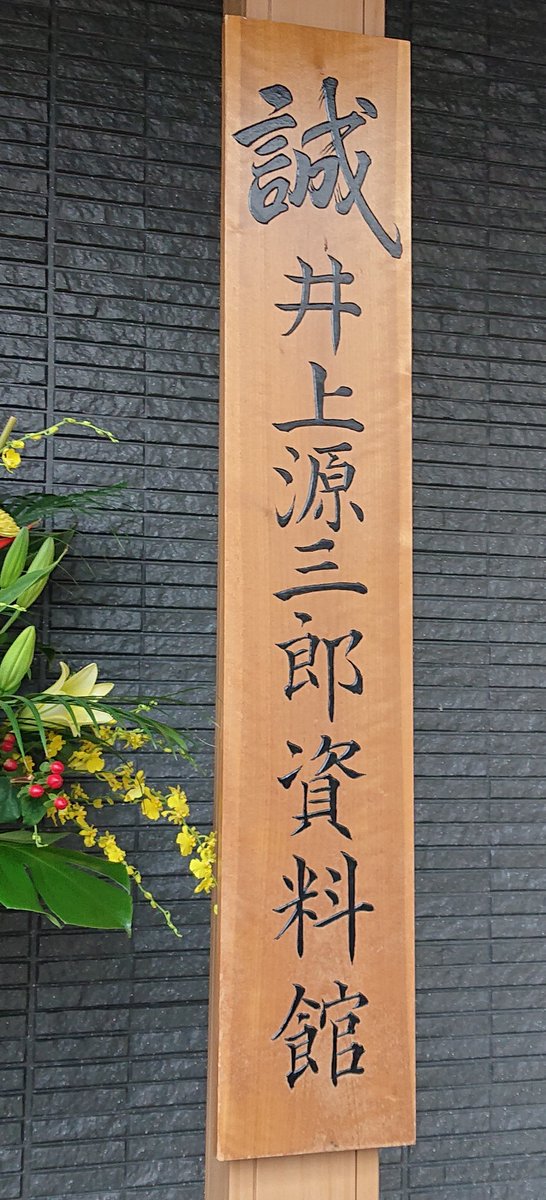 誠井上源三郎資料館